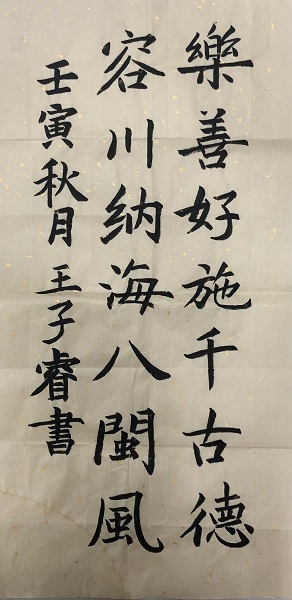 樂善好施千古德
容川納海八閩風
壬寅秋月 王子睿書